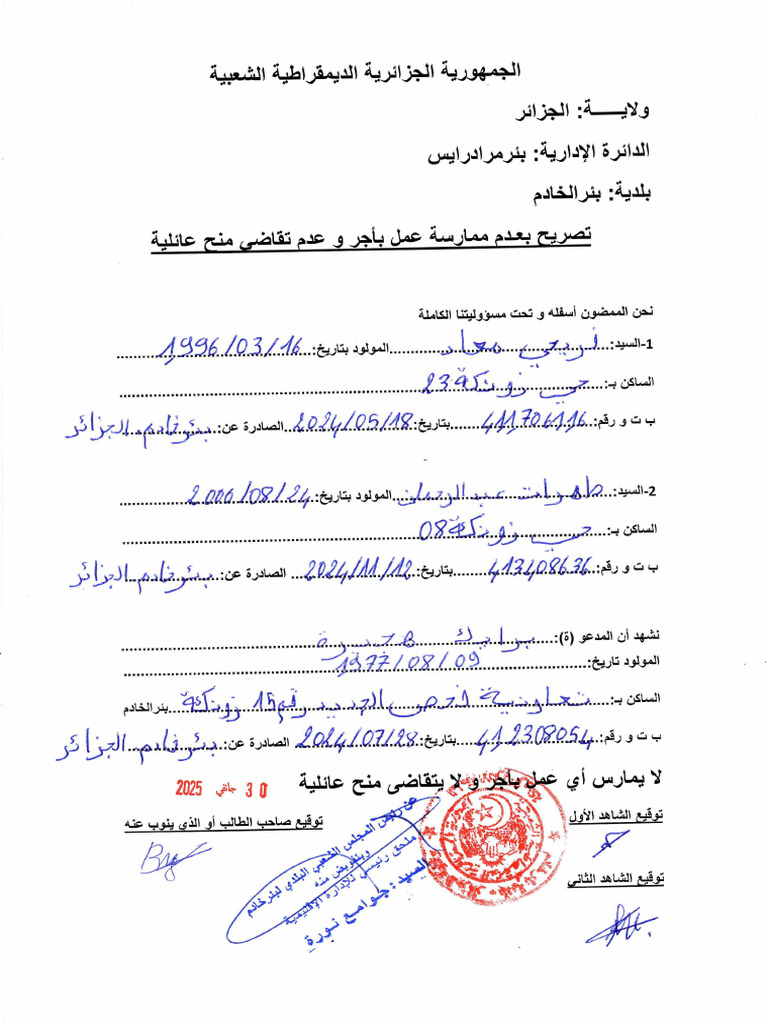 الجمهورية الجزائرية الديمقراطية الشعبية
ولايـــــة: الجزائر
الدائرة الإدارية: بئرمرادرايس
بلدية: بئرالخادم
تصريح بعدم ممارسة عمل بأجر و عدم تقاضي منح عائلية
نحن الممضون أسفله و تحت مسؤوليتنا الكاملة
1-السيد: معاد المولود بتاريخ: 1996/03/16
الساكن بـ: حي زونكة 23
ب ت و رقم: 411706116 بتاريخ: 2024/05/18 الصادرة عن: بئر خادم الجزائر
2-السيد: عبد الرحمان المولود بتاريخ: 2000/08/24
الساكن بـ: حي زونكة 08
ب ت و رقم: 413408636 بتاريخ: 2024/11/12 الصادرة عن: بئر خادم الجزائر
نشهد أن المدعو (ة):
المولود تاريخ: 1977/08/09
الساكن بـ: تعاونية فحص الجديد رقم 15 زونكة بئرالخادم
ب ت و رقم: 412308054 بتاريخ: 2024/07/28 الصادرة عن: بئر خادم الجزائر
لا يمارس أي عمل بأجر و لا يتقاضى منح عائلية
30 جانفي 2025
توقيع الشاهد الأول
توقيع صاحب الطالب أو الذي ينوب عنه
عن رئيس المجلس الشعبي البلدي لبئرخادم
وبتفويض منه
ملحق رئيسي للإدارة الإقليمية
السيد: جوامع نورة
توقيع الشاهد الثاني